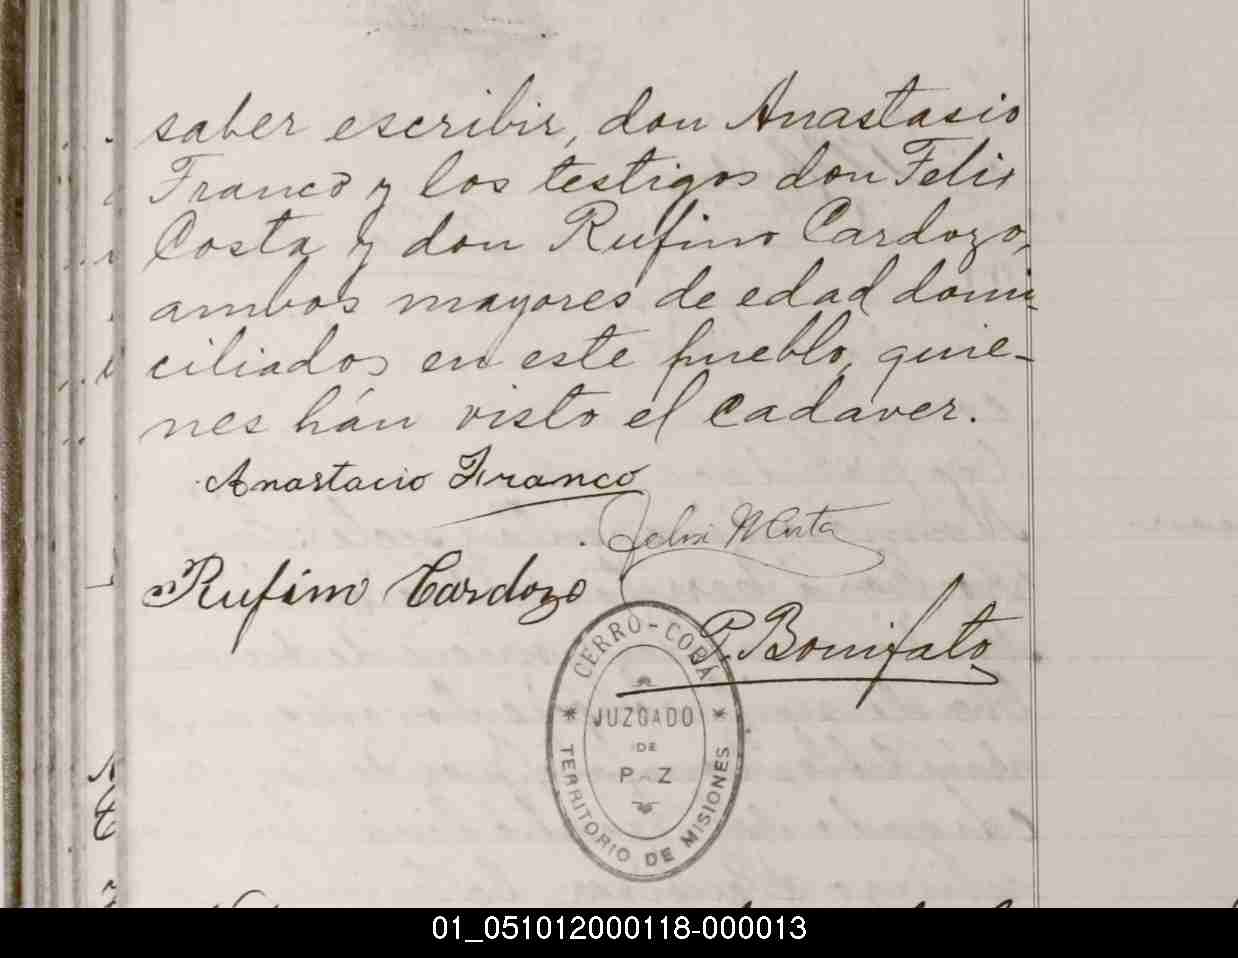 saber escribir, don Anastasio
Franco y los testigos don Felix
Costa y don Rufino Cardozo,
ambos mayores de edad domi-
ciliados en este pueblo, quie-
nes hán visto el cadaver.
Anastacio Franco
Felix
Rufino Cardozo
P. Bonifato
CERRO-CORÁ
JUZGADO
DE
PAZ
TERRITORIO DE MISIONES
01_051012000118-000013